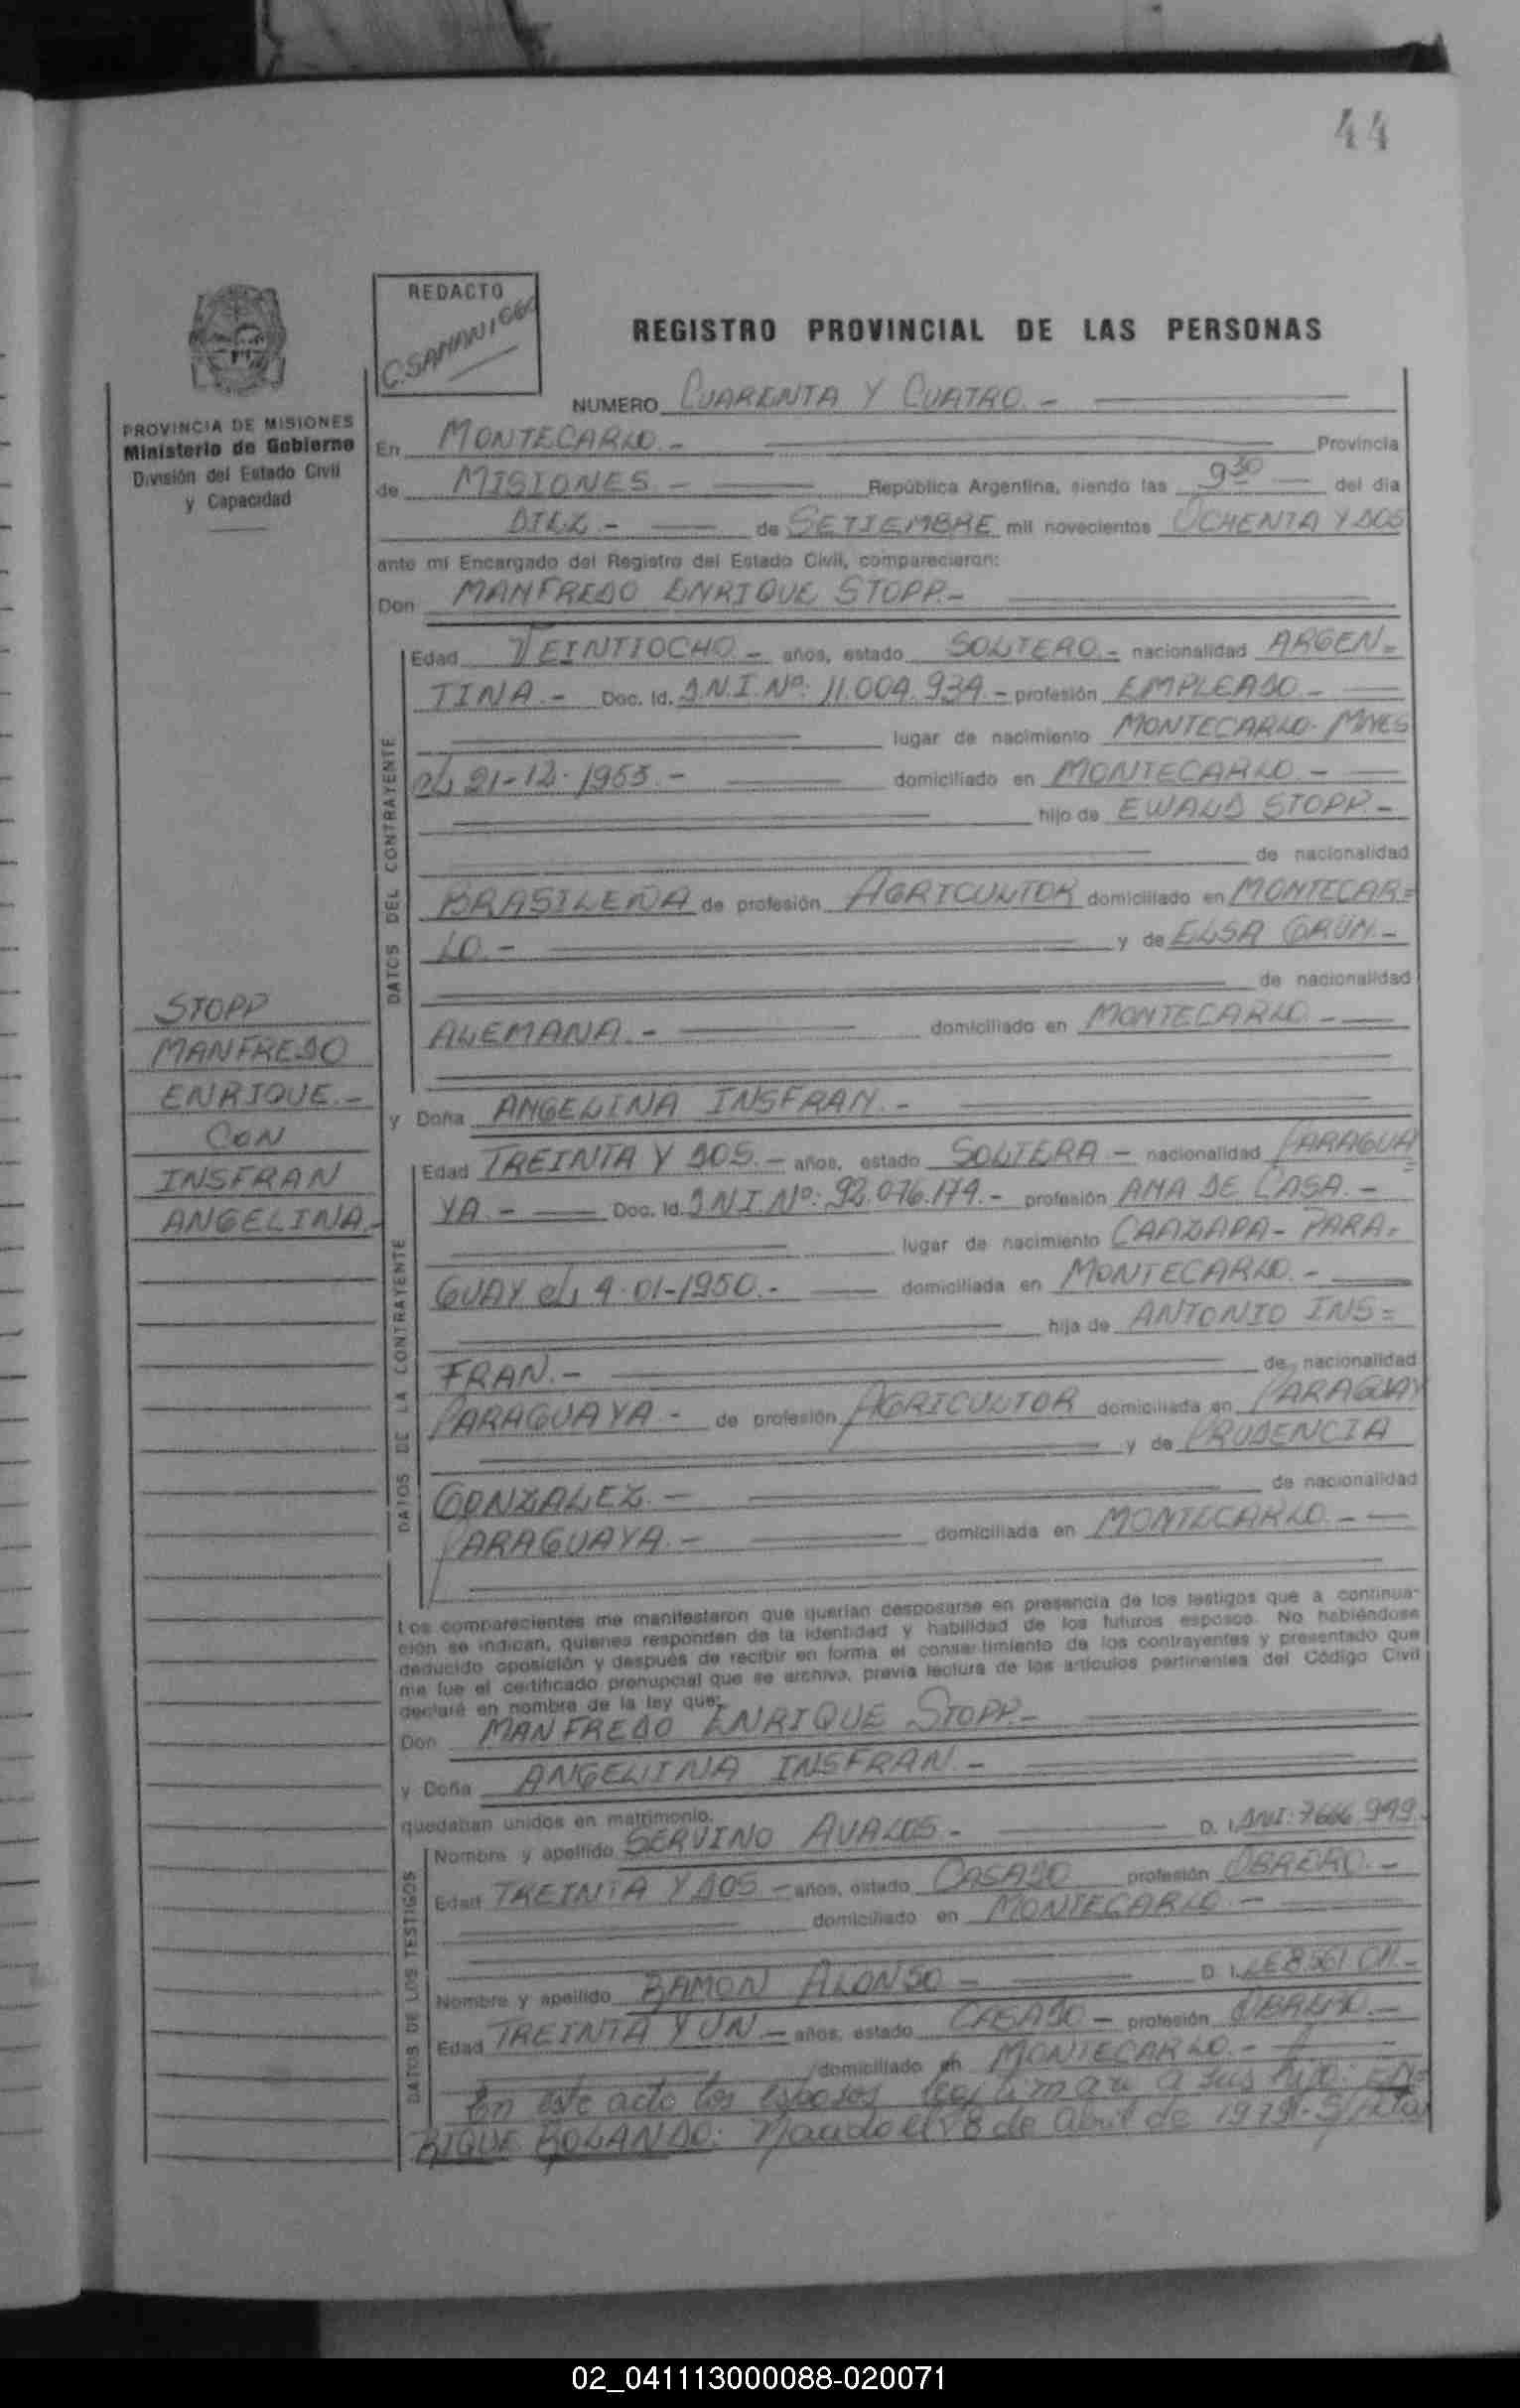 44
REDACTO
C. SAMANIEGO
REGISTRO PROVINCIAL DE LAS PERSONAS
PROVINCIA DE MISIONES
Ministerio de Gobierno
División del Estado Civil
y Capacidad
NUMERO CUARENTA Y CUATRO.-
En MONTECARLO.- Provincia
de MISIONES.- República Argentina, siendo las 9 30 del día
DIEZ.- de SETIEMBRE mil novecientos OCHENTA Y DOS
ante mí Encargado del Registro del Estado Civil, comparecieron:
Don MANFREDO ENRIQUE STOPP.-
DATOS DEL CONTRAYENTE
Edad VEINTIOCHO.- años, estado SOLTERO.- nacionalidad ARGEN=
TINA.- Doc. Id. D.N.I. Nº: 11.004.934.- profesión EMPLEADO.-
lugar de nacimiento MONTECARLO- MNES
el 21-12-1953.- domiciliado en MONTECARLO.-
hijo de EWALD STOPP.-
de nacionalidad
BRASILEÑA de profesión AGRICULTOR domiciliado en MONTECAR=
LO.- y de ELSA GRÜN.-
de nacionalidad
ALEMANA.- domiciliado en MONTECARLO.-
STOPP
MANFREDO
ENRIQUE.-
CON
INSFRAN
ANGELINA.-
y Doña ANGELINA INSFRAN.-
DATOS DE LA CONTRAYENTE
Edad TREINTA Y DOS.- años, estado SOLTERA.- nacionalidad PARAGUA=
YA.- Doc. Id. D.N.I. Nº: 92.076.174.- profesión AMA DE CASA.-
lugar de nacimiento CAAZAPA- PARA-
GUAY el 4-01-1950.- domiciliada en MONTECARLO.-
hija de ANTONIO INS=
FRAN.- de nacionalidad
PARAGUAYA.- de profesión AGRICULTOR domiciliada en PARAGUAY
y de PRUDENCIA
GONZALEZ.- de nacionalidad
PARAGUAYA.- domiciliada en MONTECARLO.-
Los comparecientes me manifestaron que querían desposarse en presencia de los testigos que a continua-
ción se indican, quienes responden de la identidad y habilidad de los futuros esposos. No habiéndose
deducido oposición y después de recibir en forma el consentimiento de los contrayentes y presentado que
me fue el certificado prenupcial que se archiva, previa lectura de los artículos pertinentes del Código Civil
declaré en nombre de la ley que:
Don MANFREDO ENRIQUE STOPP.-
y Doña ANGELINA INSFRAN.-
quedaban unidos en matrimonio.
DATOS DE LOS TESTIGOS
Nombre y apellido SERVINO AVALOS.- D. I. DNI: 7.666.949.
Edad TREINTA Y DOS.- años, estado CASADO profesión OBRERO.-
domiciliado en MONTECARLO.-
Nombre y apellido RAMON ALONSO.- D. I. LE 8.561.011.-
Edad TREINTA Y UN.- años, estado CASADO.- profesión OBRERO.-
domiciliado en MONTECARLO.-
En este acto los esposos legitiman a sus hijo: EN=
RIQUE ROLANDO: Nacido el 28 de abril de 1979.- S/Acta
02_041113000088-020071